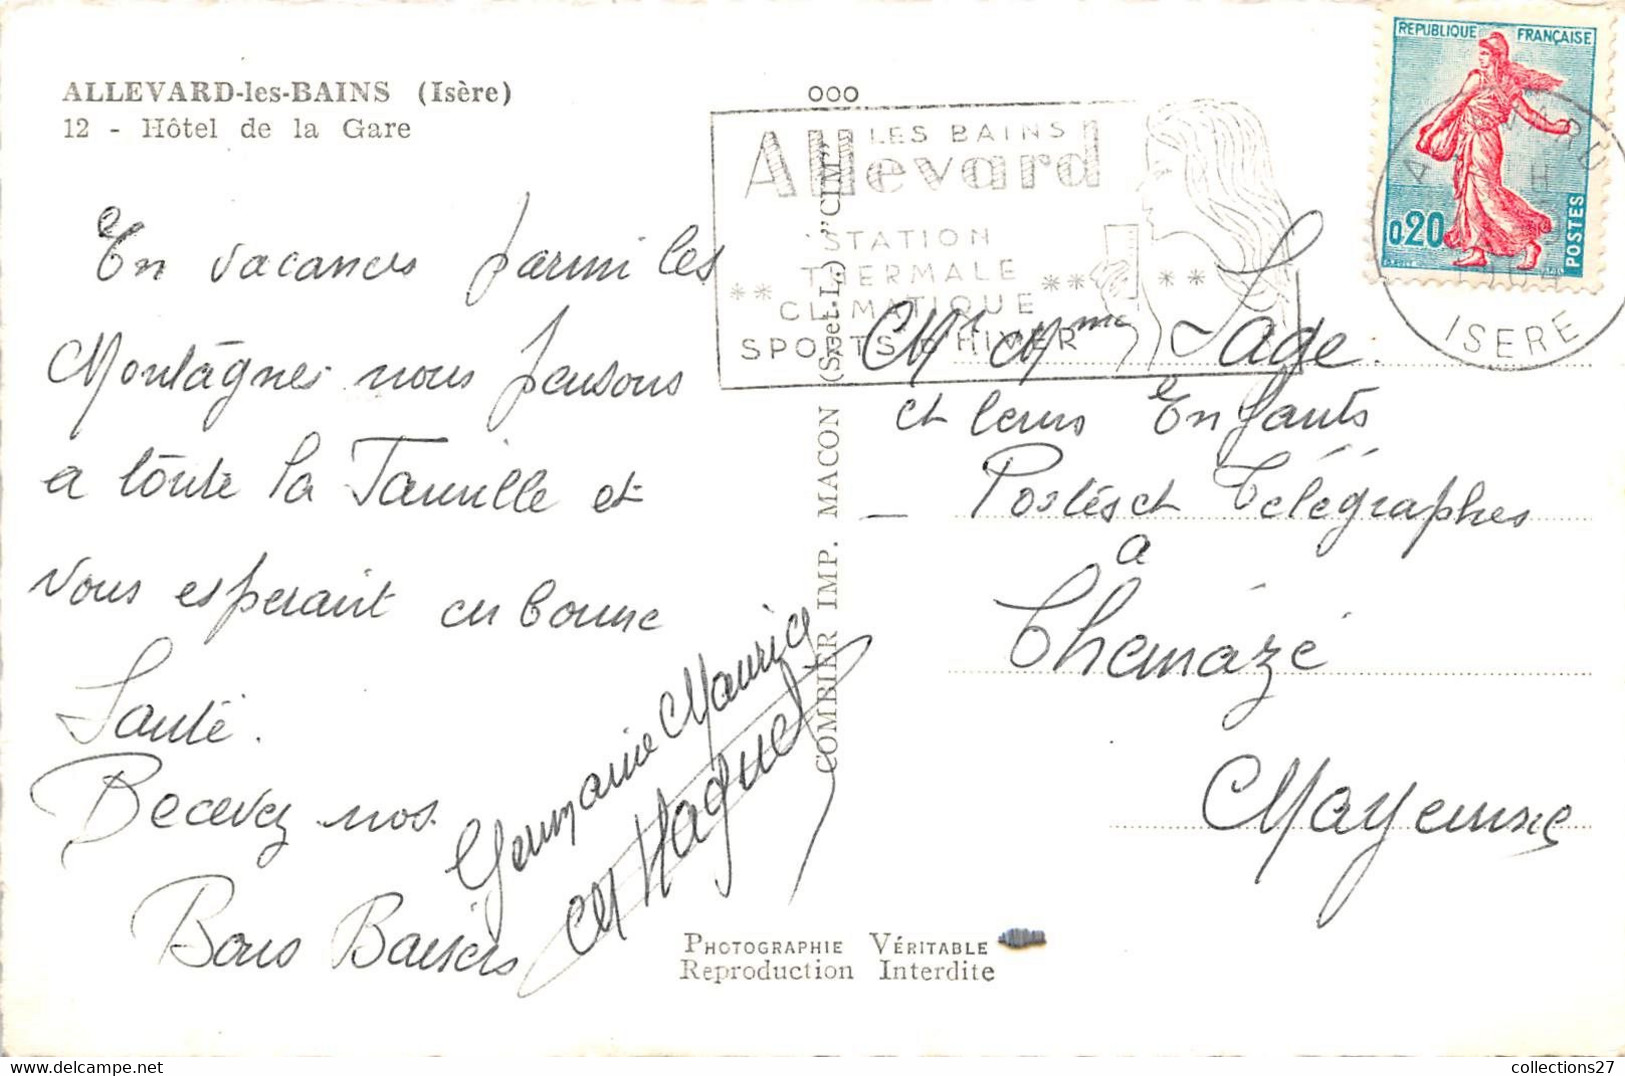 ALLEVARD-les-BAINS (Isère)
12 - Hôtel de la Gare
En vacances parmi les
Montagnes nous pensons
a toute la Famille et
vous esperant en bonne
Santé.
Recevez nos
Bons Baisers
Germaine Maurice
COMBIER IMP. MACON (S.-et-L.) "CIM"
PHOTOGRAPHIE VÉRITABLE
Reproduction Interdite
ooo
LES BAINS
Allevard
STATION
THERMALE
CLIMATIQUE
SPORTS D'HIVER
REPUBLIQUE FRANÇAISE
0,20
POSTES
ISERE
Mr Mme Sage.
et leurs Enfants
Postes et Télégraphes
a
Chemazé
Mayenne
collections27